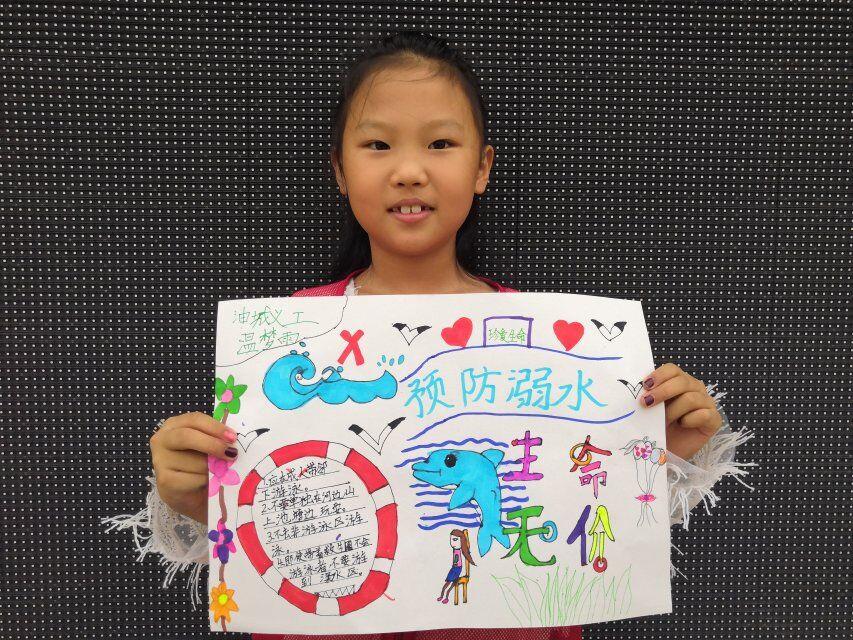 油城义工
温梦雨
珍爱生命
预防溺水
生命
无价
1.应在成人带领
下游泳。
2.不要单独在河边、山
上池塘边玩耍。
3.不去非游泳区游
泳。
4.即使带着救生圈不会
游泳者不要游
到深水区。